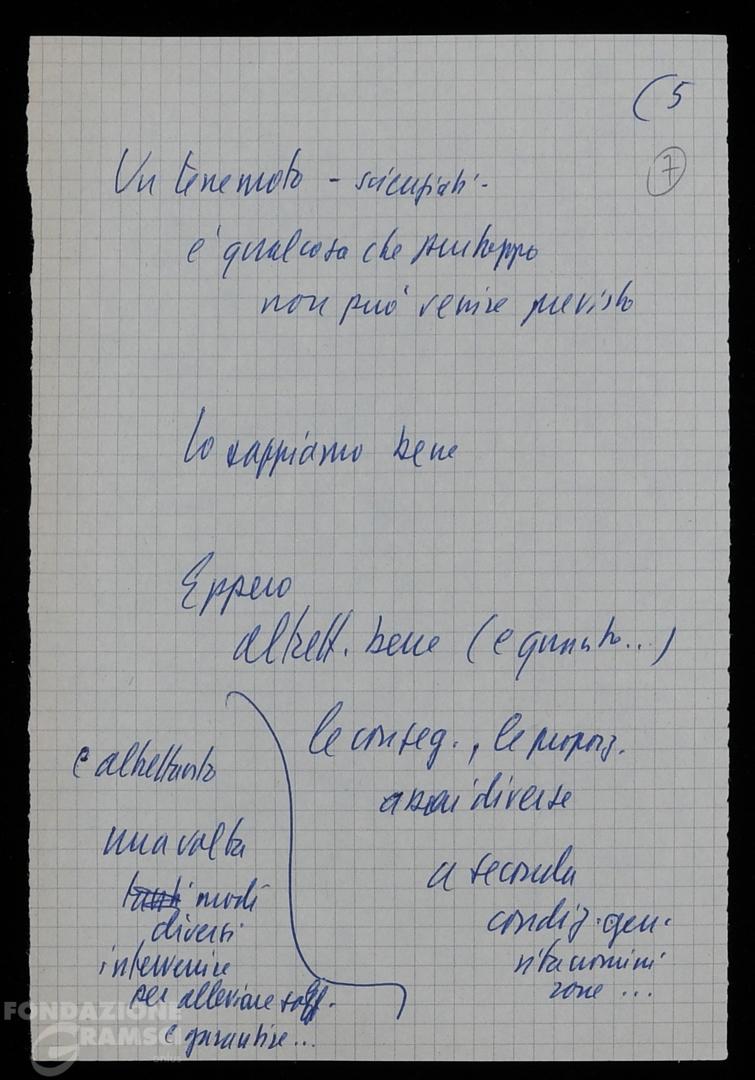 (5
7
Un terremoto - scienziati -
è qualcosa che purtroppo
non può venire previsto
lo sappiamo bene
Epperò
altrett. bene (e quanto...)
le conseg., le proporz.
assai diverse
a seconda
condiz. gen.
vita uomini
zone ...
e altrettanto
una volta
tanti modi
diversi
intervenire
per alleviare soff.
e garantire...
FONDAZIONE
GRAMSCI